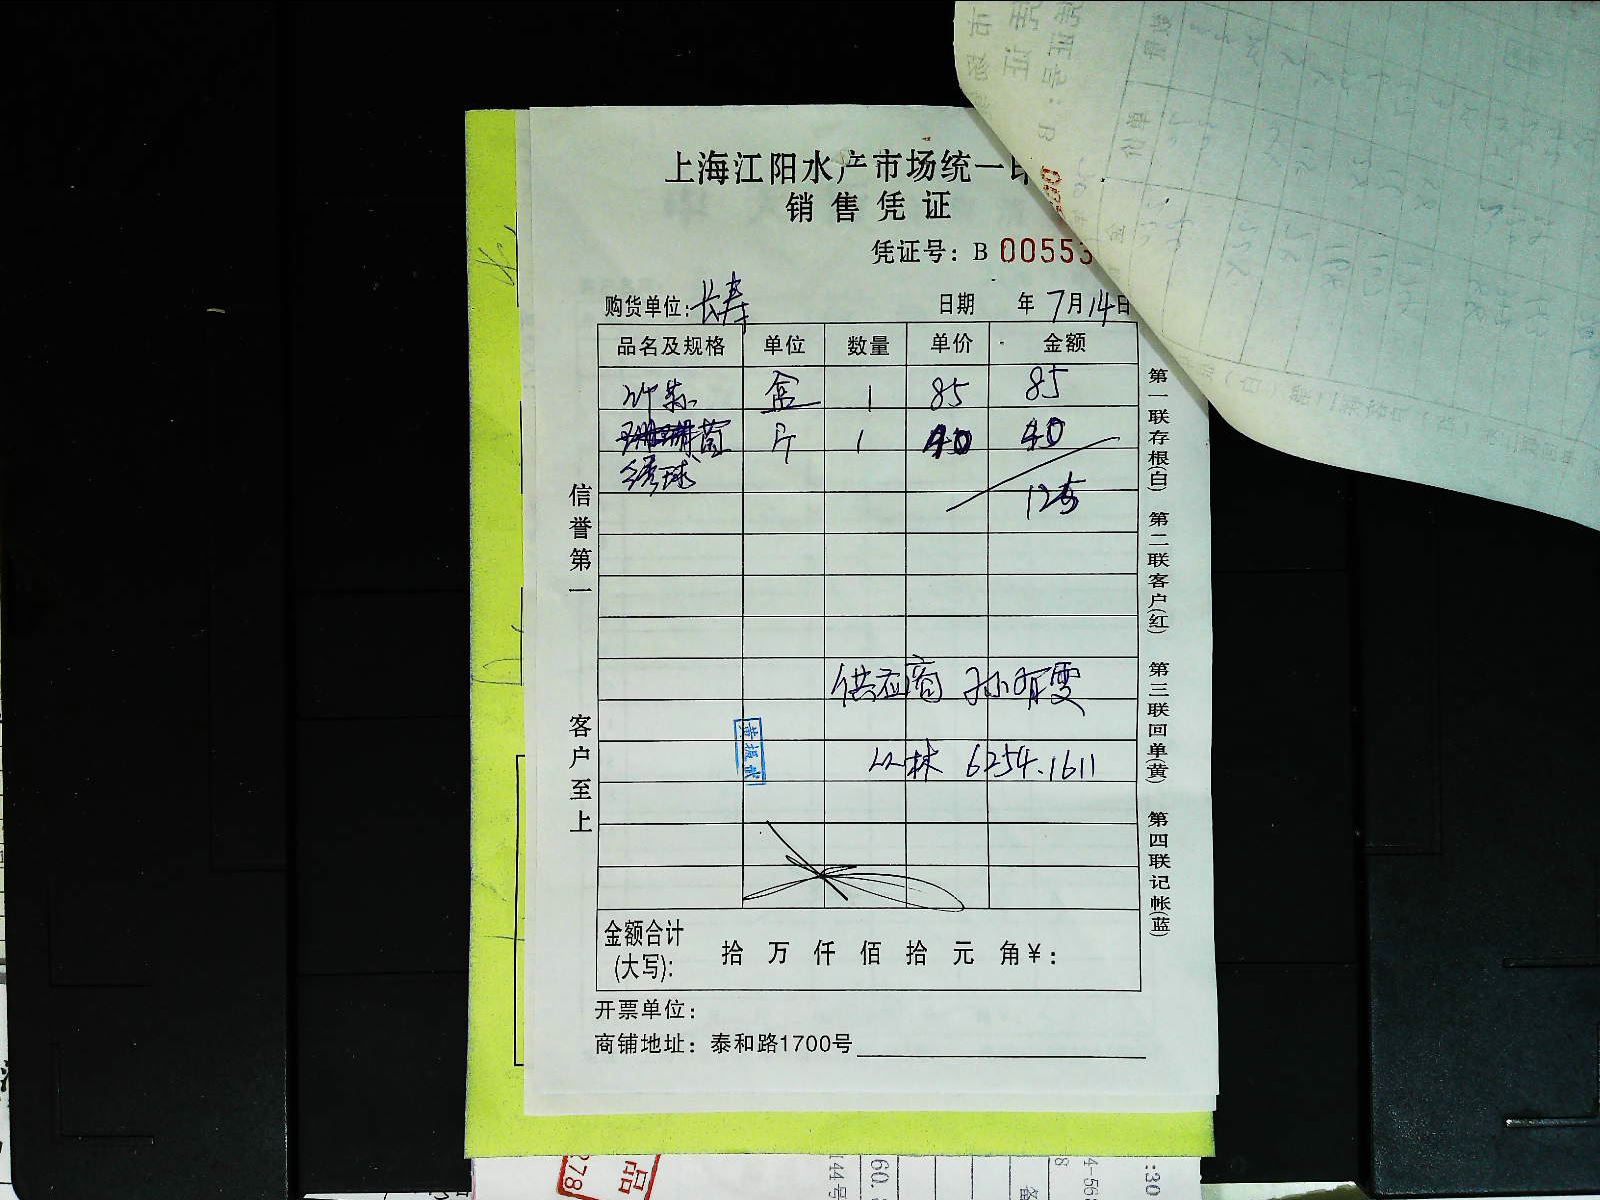 上海江阳水产市场统一印
销售凭证
凭证号：B 00553
购货单位：长寿 日期 年7月14日
品名及规格 单位 数量 单价 金额
竹荪 盒 1 85 85
菌 斤 1 40 40
绣球
125
供应商 孙有雯
丛林 6254.1611
金额合计(大写)： 拾 万 仟 佰 拾 元 角￥：
开票单位：
商铺地址：泰和路1700号
信誉第一
客户至上
第一联存根(白) 第二联客户(红) 第三联回单(黄) 第四联记帐(蓝)